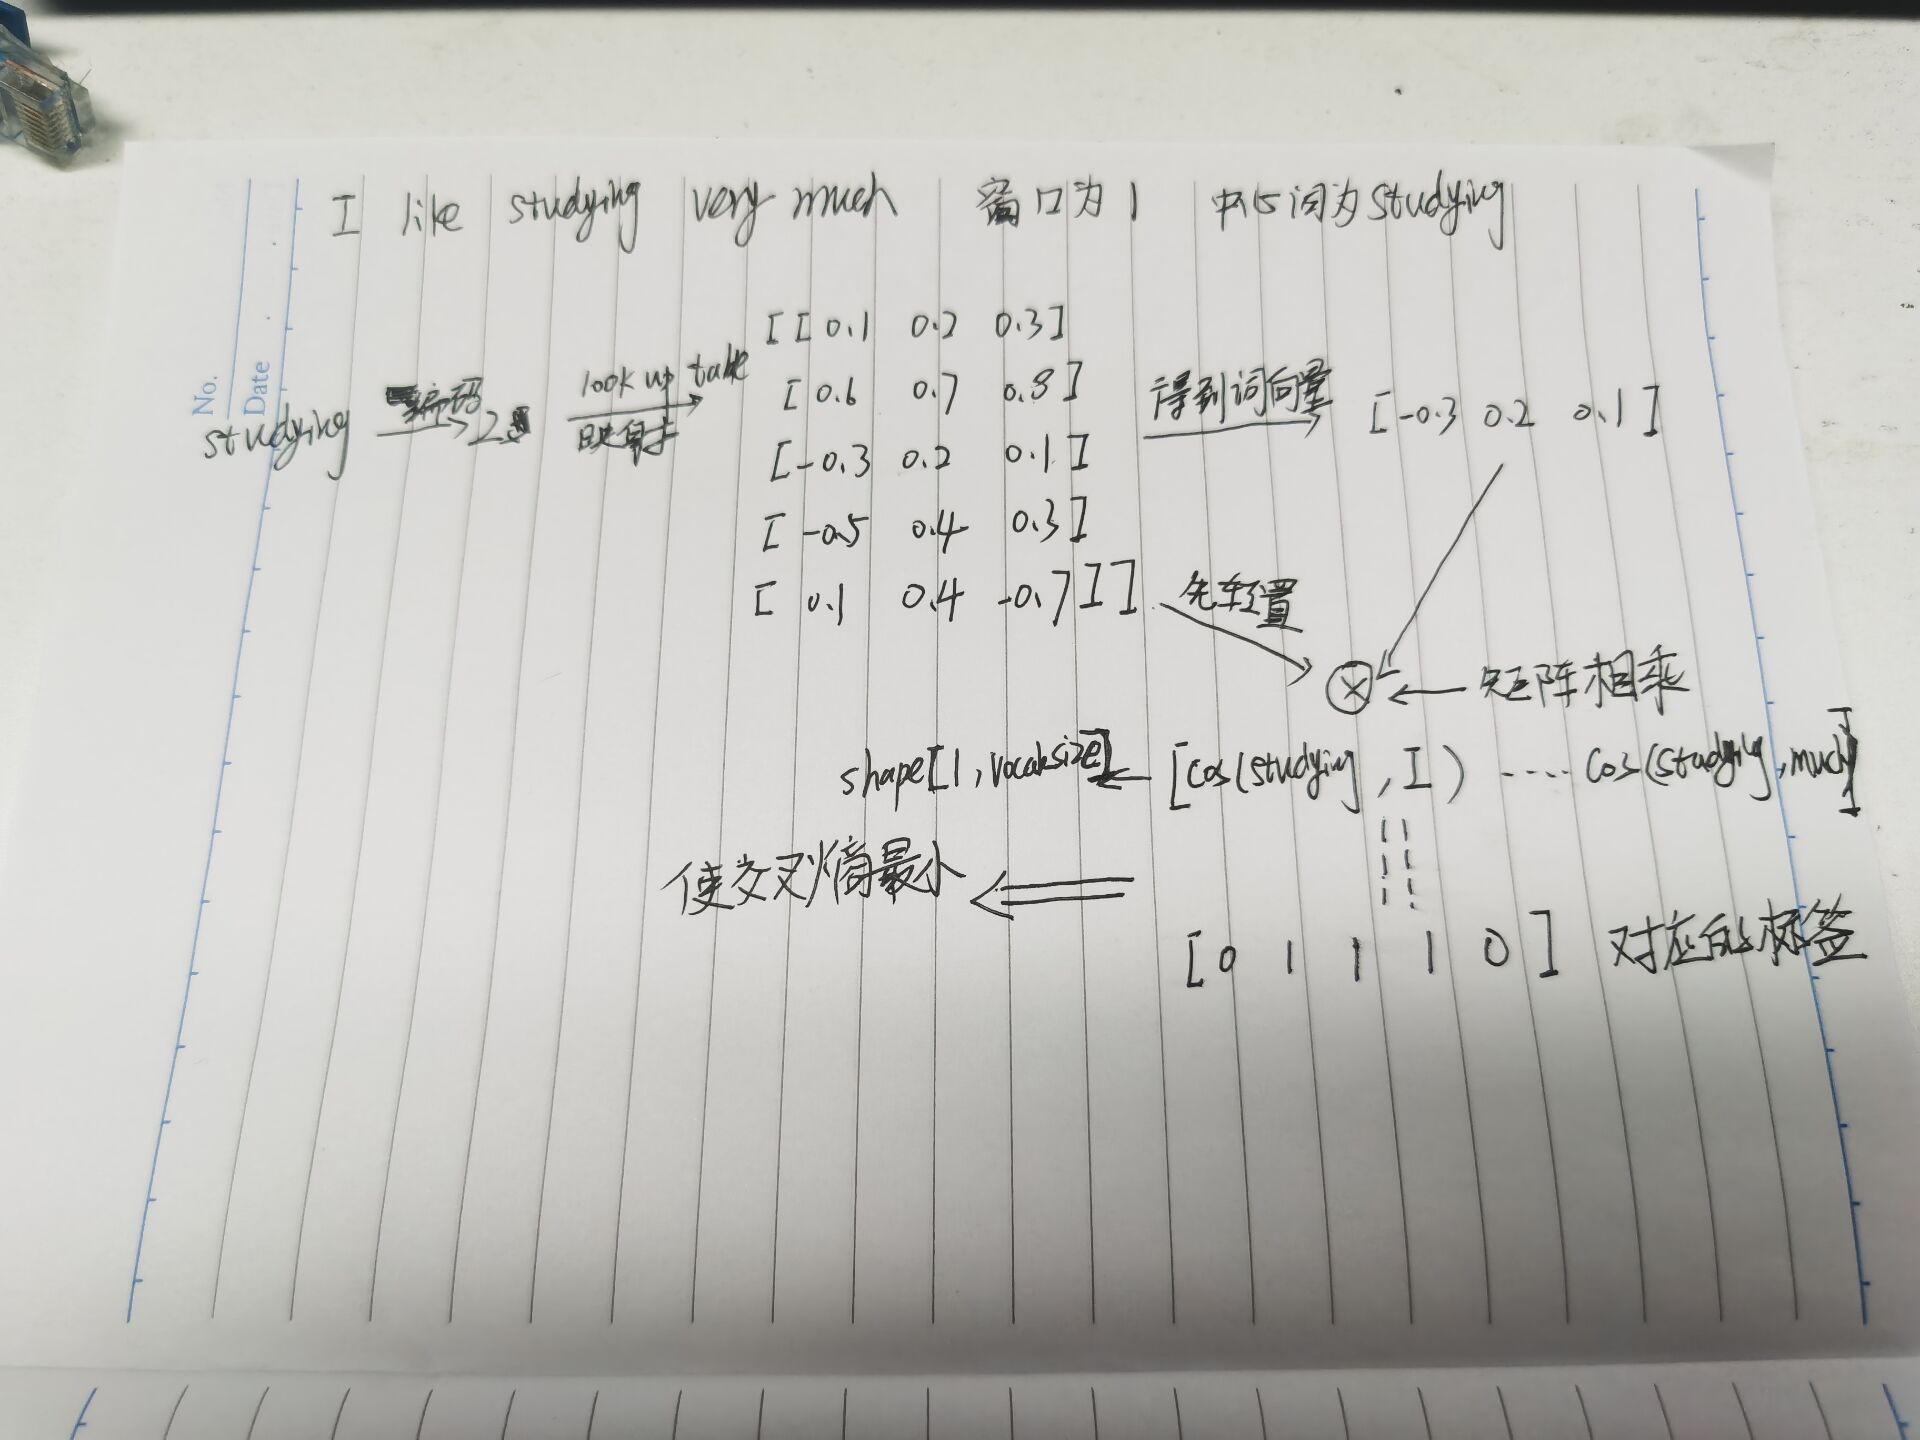 I like studying very much 窗口为1 中心词为studying
No.
Date
studying 编码 2 look up table 映射
[[0.1 0.2 0.3]
[0.6 0.7 0.8]
[-0.3 0.2 0.1]
[-0.5 0.4 0.3]
[0.1 0.4 -0.7]]
得到词向量 [-0.3 0.2 0.1]
先转置
⊗ 矩阵相乘
shape[1,vocabsize] [cos(studying,I) ---- cos(studying,much)]
使交叉熵最小
[0 1 1 1 0] 对应的标签